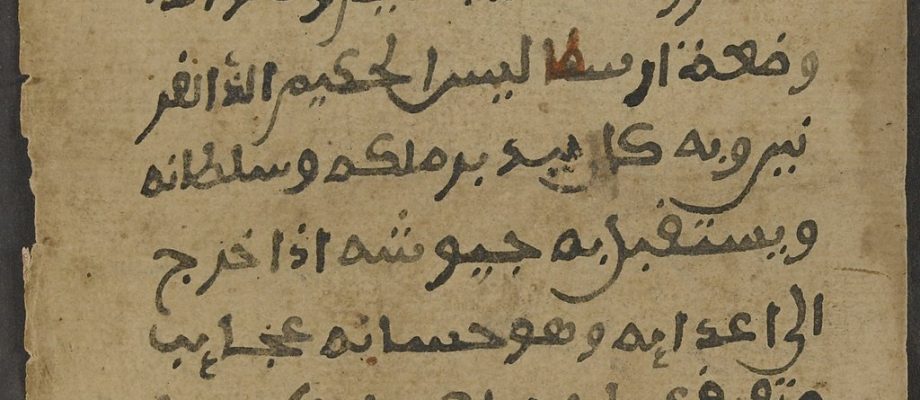 وضعه ارسطاليس الحكيم لذا القر
نين وبه كان يدبر ملكه وسلطانه
ويستقبل به جيوشه اذا خرج
الى اعدايه وهو عجايب